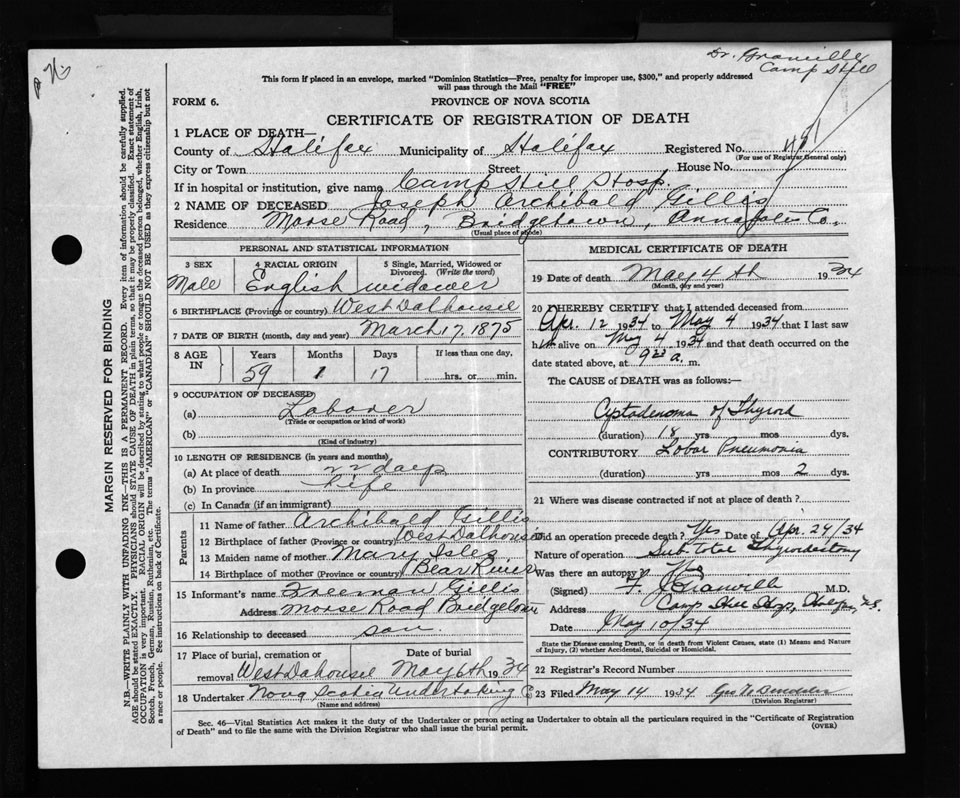 Dr. Granville
Camp Hill
This form if placed in an envelope, marked "Dominion Statistics—Free, penalty for improper use, $300," and properly addressed
will pass through the Mail "FREE"
FORM 6.
PROVINCE OF NOVA SCOTIA
CERTIFICATE OF REGISTRATION OF DEATH
1 PLACE OF DEATH—
County of Halifax Municipality of Halifax Registered No. 451
(For use of Registrar General only)
City or Town Street House No.
If in hospital or institution, give name Camp Hill Hosp.
2 NAME OF DECEASED Joseph Archibald Gillis
Residence Morse Road, Bridgetown, Annapolis Co.
(Usual place of abode)
PERSONAL AND STATISTICAL INFORMATION
3 SEX 4 RACIAL ORIGIN 5 Single, Married, Widowed or
Divorced. (Write the word)
Male English widower
6 BIRTHPLACE (Province or country) West Dalhousie
7 DATE OF BIRTH (month, day and year) March 17, 1875
8 AGE IN Years Months Days If less than one day,
59 1 17 hrs. or min.
9 OCCUPATION OF DECEASED
(a) Laborer
(Trade or occupation or kind of work)
(b)
(Kind of industry)
10 LENGTH OF RESIDENCE (in years and months)
(a) At place of death 22 days
(b) In province Life
(c) In Canada (if an immigrant)
Parents
11 Name of father Archibald Gillis
12 Birthplace of father (Province or country) West Dalhousie
13 Maiden name of mother Mary
14 Birthplace of mother (Province or country) Bear River
15 Informant's name Freeman Gillis
Address Morse Road Bridgetown
16 Relationship to deceased son
17 Place of burial, cremation or Date of burial
removal West Dahousie May 6th 1934
18 Undertaker Nova Scotia Undertaking Co
(Name and address)
MEDICAL CERTIFICATE OF DEATH
19 Date of death May 4th 1934
(Month, day and year)
20 I HEREBY CERTIFY that I attended deceased from
Apr. 12 1934 to May 4 1934 that I last saw
him alive on May 4 1934 and that death occurred on the
date stated above, at 9 a. m.
The CAUSE of DEATH was as follows:—
Cystadenoma of Thyroid
(duration) 18 yrs mos dys.
CONTRIBUTORY Lobar Pneumonia
(duration) yrs mos 2 dys.
21 Where was disease contracted if not at place of death?
Did an operation precede death? Yes Date of Apr. 24/34
Nature of operation Subtotal Thyroidectomy
Was there an autopsy?
(Signed) F. J. Granville M.D.
Address Camp Hill Hosp, Halifax, N.S.
Date May 10/34
State the Disease causing Death, or in death from Violent Causes, state (1) Means and Nature
of Injury, (2) whether Accidental, Suicidal or Homicidal.
22 Registrar's Record Number
23 Filed May 14 1934
(Division Registrar)
Sec. 46—Vital Statistics Act makes it the duty of the Undertaker or person acting as Undertaker to obtain all the particulars required in the "Certificate of Registration
of Death" and to file the same with the Division Registrar who shall issue the burial permit.
(OVER)
MARGIN RESERVED FOR BINDING
N.B.—WRITE PLAINLY WITH UNFADING INK—THIS IS A PERMANENT RECORD. Every item of information should be carefully supplied.
AGE should be stated EXACTLY. PHYSICIANS should STATE CAUSE OF DEATH in plain terms, so that it may be properly classified. Exact statement of
OCCUPATION is very important. RACIAL ORIGIN will be described by stating to what people or tongue the deceased person belonged, whether English, Irish,
Scotch, French, German, Russian, Ruthenian, etc. The terms "AMERICAN" or "CANADIAN" SHOULD NOT BE USED as they express citizenship but not
a race or people. See instructions on back of Certificate.